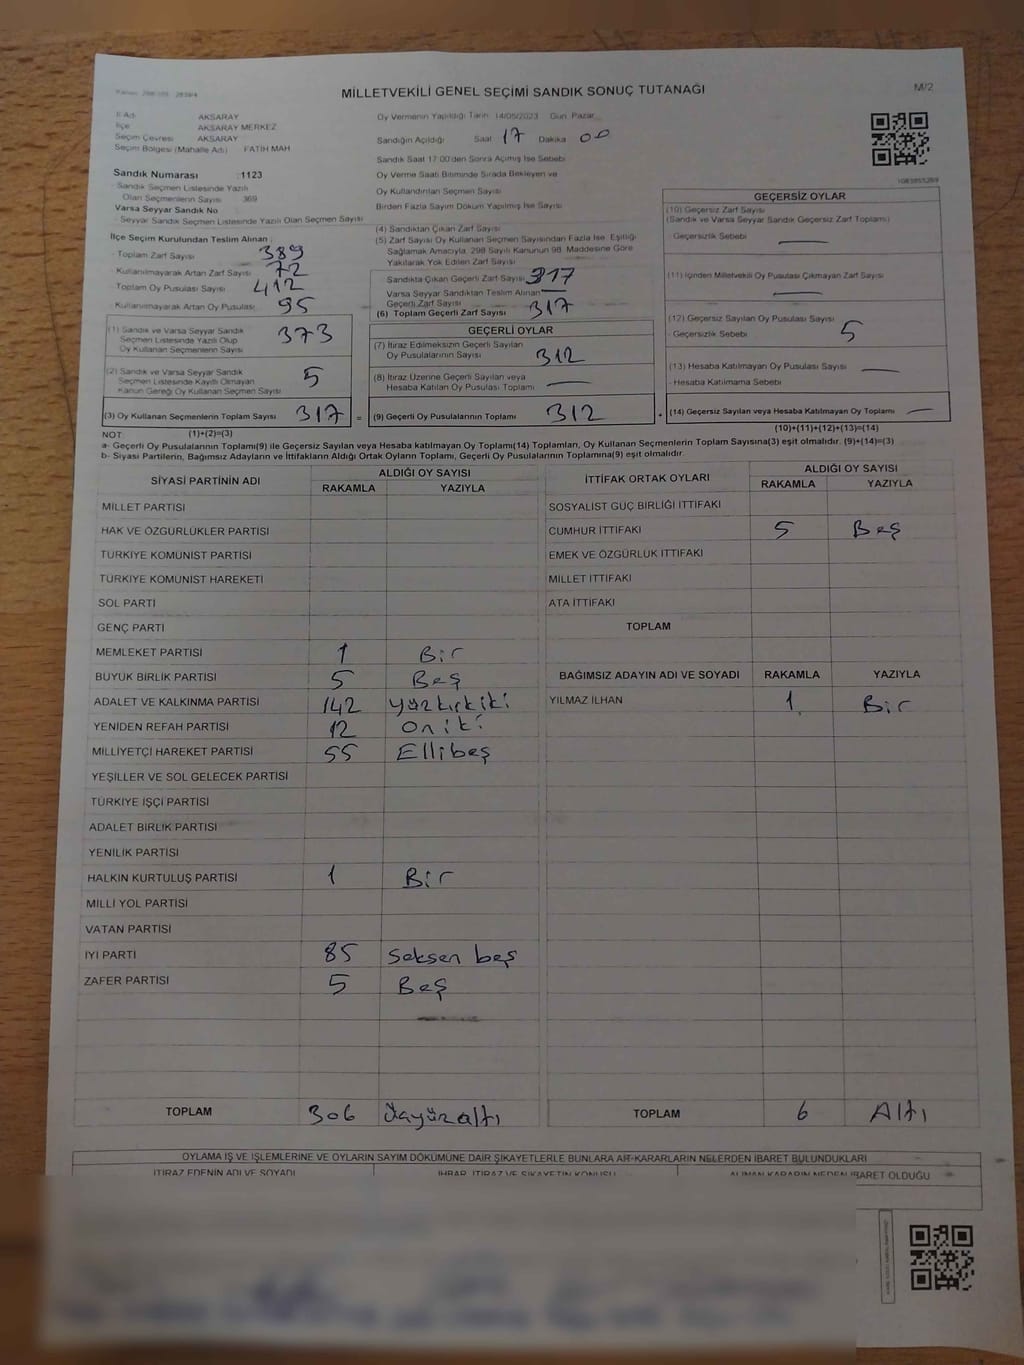 MİLLETVEKİLİ GENEL SEÇİMİ SANDIK SONUÇ TUTANAĞI
M/2
İl Adı AKSARAY
İlçe AKSARAY MERKEZ
Seçim Çevresi AKSARAY
Seçim Bölgesi (Mahalle Adı) FATİH MAH
Sandık Numarası :1123
Sandık Seçmen Listesinde Yazılı
Olan Seçmenlerin Sayısı 369
Varsa Seyyar Sandık No
Seyyar Sandık Seçmen Listesinde Yazılı Olan Seçmen Sayısı
İlçe Seçim Kurulundan Teslim Alınan :
Toplam Zarf Sayısı 389
Kullanılmayarak Artan Zarf Sayısı 72
Toplam Oy Pusulası Sayısı 412
Kullanılmayarak Artan Oy Pusulası 95
(1) Sandık ve Varsa Seyyar Sandık
Seçmen Listesinde Yazılı Olup
Oy Kullanan Seçmenlerin Sayısı 373
(2) Sandık ve Varsa Seyyar Sandık
Seçmen Listesinde Kayıtlı Olmayan
Kanun Gereği Oy Kullanan Seçmen Sayısı 5
(3) Oy Kullanan Seçmenlerin Toplam Sayısı 317 =
Oy Vermenin Yapıldığı Tarih 14/05/2023 Gün Pazar
Sandığın Açıldığı Saat 17 Dakika 00
Sandık Saat 17:00'den Sonra Açılmış İse Sebebi
Oy Verme Saati Bitiminde Sırada Bekleyen ve
Oy Kullandırılan Seçmen Sayısı
Birden Fazla Sayım Döküm Yapılmış İse Sayısı
(4) Sandıktan Çıkan Zarf Sayısı
(5) Zarf Sayısı Oy Kullanan Seçmen Sayısından Fazla İse, Eşitliği
Sağlamak Amacıyla, 298 Sayılı Kanunun 98. Maddesine Göre
Yakılarak Yok Edilen Zarf Sayısı
Sandıkta Çıkan Geçerli Zarf Sayısı 317
Varsa Seyyar Sandıktan Teslim Alınan
Geçerli Zarf Sayısı
(6) Toplam Geçerli Zarf Sayısı 317
GEÇERLİ OYLAR
(7) İtiraz Edilmeksizin Geçerli Sayılan
Oy Pusulalarının Sayısı 312
(8) İtiraz Üzerine Geçerli Sayılan veya
Hesaba Katılan Oy Pusulası Toplamı
(9) Geçerli Oy Pusulalarının Toplamı 312 +
GEÇERSİZ OYLAR
(10) Geçersiz Zarf Sayısı
(Sandık ve Varsa Seyyar Sandık Geçersiz Zarf Toplamı)
- Geçersizlik Sebebi
(11) İçinden Milletvekili Oy Pusulası Çıkmayan Zarf Sayısı
(12) Geçersiz Sayılan Oy Pusulası Sayısı 5
- Geçersizlik Sebebi
(13) Hesaba Katılmayan Oy Pusulası Sayısı
- Hesaba Katılmama Sebebi
(14) Geçersiz Sayılan veya Hesaba Katılmayan Oy Toplamı
NOT: (1)+(2)=(3)
(10)+(11)+(12)+(13)=(14)
a- Geçerli Oy Pusulaları Toplamı(9) ile Geçersiz Sayılan veya Hesaba katılmayan Oy Toplamı(14) Toplamları, Oy Kullanan Seçmenlerin Toplam Sayısına(3) eşit olmalıdır. (9)+(14)=(3)
b- Siyasi Partilerin, Bağımsız Adayların ve İttifakların Aldığı Ortak Oyların Toplamı, Geçerli Oy Pusulalarının Toplamına(9) eşit olmalıdır.
SİYASİ PARTİNİN ADI ALDIĞI OY SAYISI
RAKAMLA YAZIYLA
MİLLET PARTİSİ
HAK VE ÖZGÜRLÜKLER PARTİSİ
TÜRKİYE KOMÜNİST PARTİSİ
TÜRKİYE KOMÜNİST HAREKETİ
SOL PARTİ
GENÇ PARTİ
MEMLEKET PARTİSİ 1 Bir
BÜYÜK BİRLİK PARTİSİ 5 Beş
ADALET VE KALKINMA PARTİSİ 142 yüzkırkiki
YENİDEN REFAH PARTİSİ 12 Oniki
MİLLİYETÇİ HAREKET PARTİSİ 55 Ellibeş
YEŞİLLER VE SOL GELECEK PARTİSİ
TÜRKİYE İŞÇİ PARTİSİ
ADALET BİRLİK PARTİSİ
YENİLİK PARTİSİ
HALKIN KURTULUŞ PARTİSİ 1 Bir
MİLLİ YOL PARTİSİ
VATAN PARTİSİ
İYİ PARTİ 85 Seksen beş
ZAFER PARTİSİ 5 Beş
TOPLAM 306 Üçyüzaltı
İTTİFAK ORTAK OYLARI ALDIĞI OY SAYISI
RAKAMLA YAZIYLA
SOSYALİST GÜÇ BİRLİĞİ İTTİFAKI
CUMHUR İTTİFAKI 5 Beş
EMEK VE ÖZGÜRLÜK İTTİFAKI
MİLLET İTTİFAKI
ATA İTTİFAKI
TOPLAM
BAĞIMSIZ ADAYIN ADI VE SOYADI RAKAMLA YAZIYLA
YILMAZ İLHAN 1 Bir
TOPLAM 6 Altı
OYLAMA İŞ VE İŞLEMLERİNE VE OYLARIN SAYIM DÖKÜMÜNE DAİR ŞİKAYETLERLE BUNLARA AİT KARARLARIN NELERDEN İBARET BULUNDUKLARI
İTİRAZ EDENİN ADI VE SOYADI İHBAR, İTİRAZ VE ŞİKAYETİN KONUSU ALINAN KARARIN NEDEN İBARET OLDUĞU